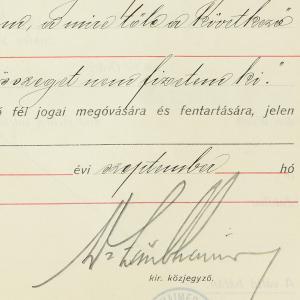 a mire tőle a következő
összeget nem fizetem ki."
fél jogai megóvására és fentartására, jelen
évi szeptember hó
Dr
kir. közjegyző.